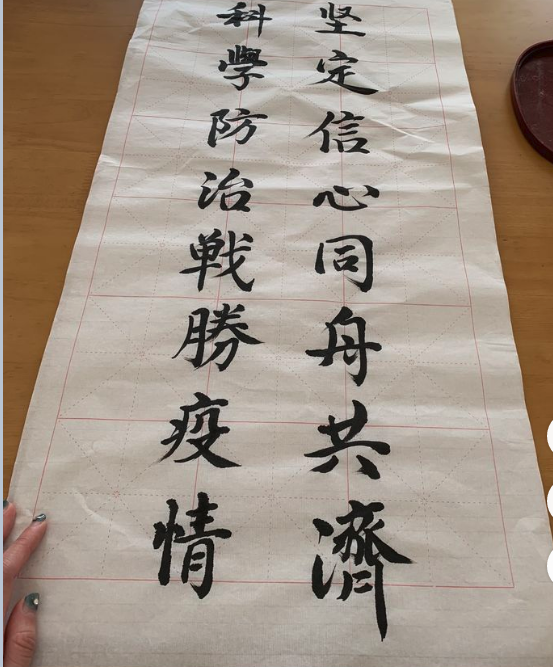 坚定信心同舟共濟
科學防治戦勝疫情